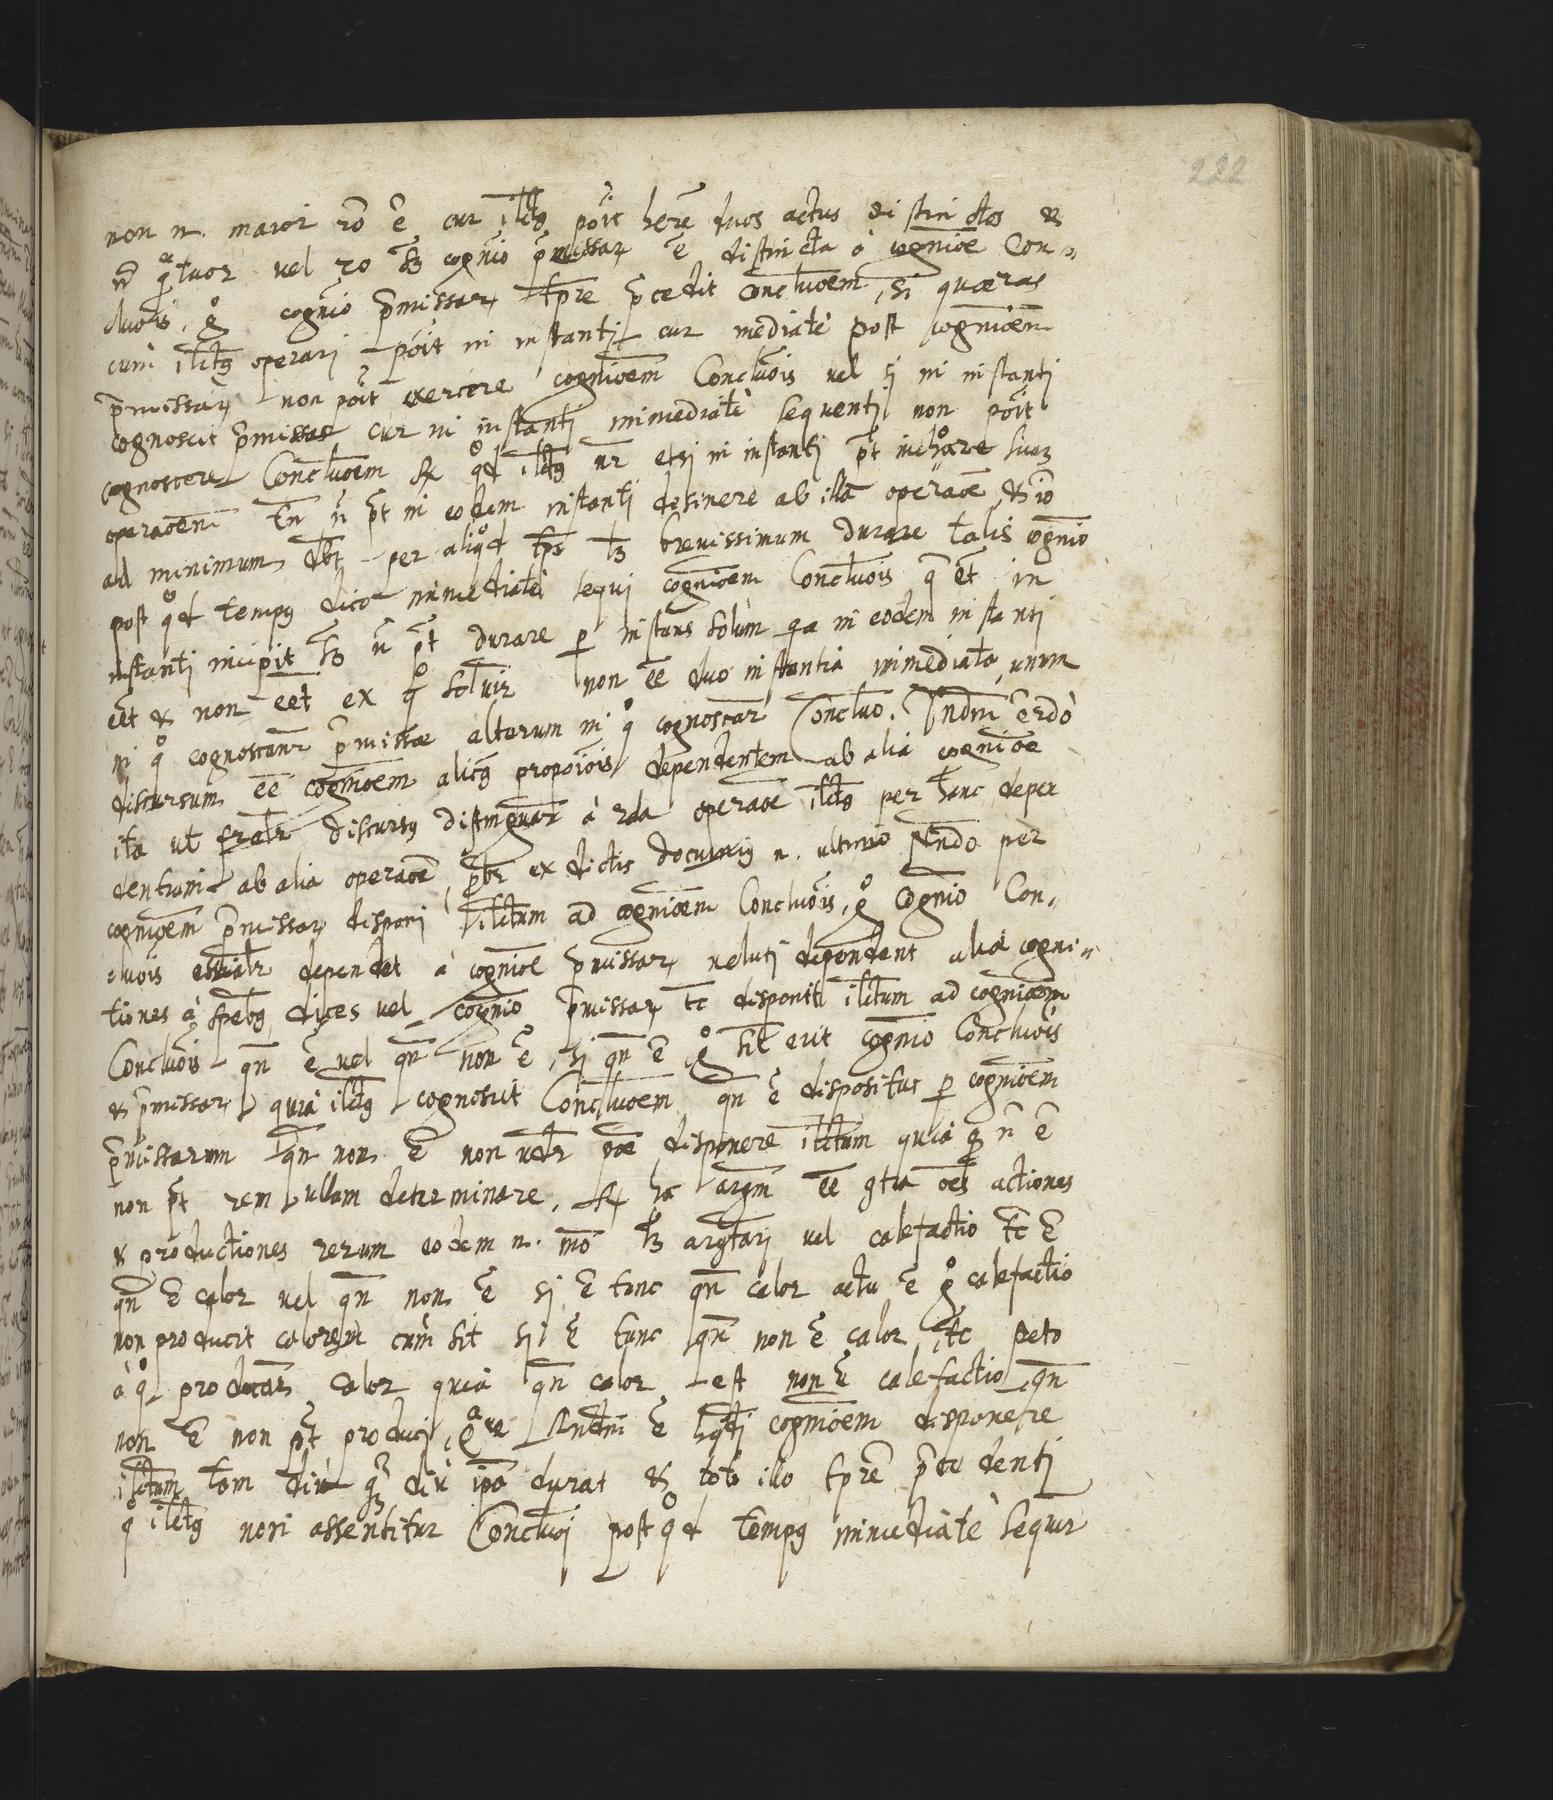 222
non n. maior rõ ẽ cur ilctg põit herẽ duos actus distinctos &
ñ qᵃtuor vel ro hʒ cognĩo p̃missar ẽ distincta à cognĩoe Con„
cluõis. g° cognĩo p̃missar tp̃re p̃cedit conclũoem, si quæras
cum ilctg operari põit in instanti cur mediatè post cognĩoem
p̃missar non põit exercere cognĩoem Conclũois vel si in instanti
cognoscit p̃missas cur in instanti immediatè sequenti non põit
cognoscere Conclũoem R q°d ilctg nr̃ etsi in instanti p̃t inchoare suam
operaõem tñ ñ p̃t in eodem instanti desinere ab illa operaõe, & iõ
ad minimum dbt per aliq°d tp̃s lʒ brevissimum durare talis cognĩo
post q°d tempg dico immediatè sequi cognĩoem Conclũois q̃ et in
instanti incipit sʒ ñ p̃t durare p instans solùm qa in eodem instanti
eẽt & non eẽt ex q° solvir non eẽ duo instantia immediata, unum
in q° cognoscant̃ p̃missæ alterum in q° cognoscar̃ Conclũo. Tndm̃ 3° dõ
discursum eẽ cognĩoem alicg propõiois dependentem ab alia cognĩoe
ita ut fralr discursg distinguar̃ à 2da operaõe ilctg per hanc depen
dentiam ab alia operaõe, p̃br ex dictis documg n. ultimo Rndo per
cognĩoem p̃missar disponi ilctum ad cognĩoem Conclũois, g° Cognĩo Con„
clũois eẽntialr dependet à cognĩoe p̃missar veluti dependent aliæ cogni„
tiones à spẽbg, dices vel cognĩo p̃missar tc disponit ilctum ad cognĩoem
Conclũois qñ ẽ vel qñ non ẽ, si qñ ẽ g° sil erit cognĩo Conclũois
& p̃missar quia ilctg cognoscit Conclũoem qñ ẽ dispositus p cognĩoem
p̃missarum qñ non ẽ non vdr põe disponere ilctum quia q̃ ñ ẽ
non p̃t rem ullam determinare. R hõc argm̃ eẽ qtra oẽs actiones
& productiones rerum eodem n. mõ lʒ argt̃ari vel calefactio tc ẽ
qñ ẽ calor vel qñ non ẽ si ẽ tunc qñ calor actu ẽ g° calefactio
non producit calorem cum sit si ẽ tunc qñ non ẽ calor, tc peto
à q° producar̃ calor quia qñ calor est non ẽ calefactio, qñ
non ẽ non p̃t produci, Qᵃre Rndm̃ ẽ hqdi cognĩoem disponere
ilctum tam diù q̃ diù ip̃a durat & toto illo tp̃re p̃cedenti
q° ilctg non assentitur Conclũoi post q°d tempg immediatè sequir̃